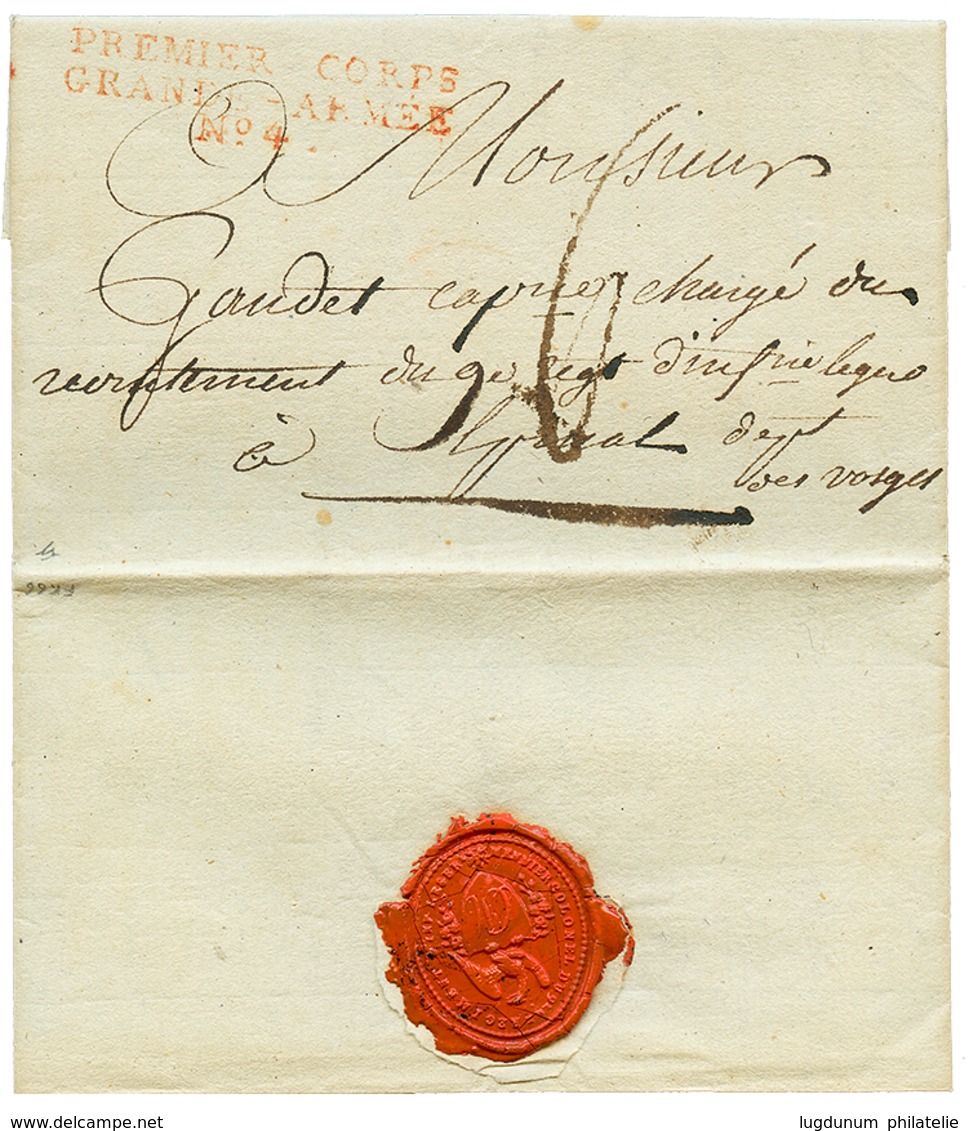 PREMIER CORPS
GRANDE-ARMÉE
No. 4
A Monsieur
Gaudet capne chargé du
recrutement du 9e regt d'infrie legere
à Epinal dept
des vosges
COLONEL DU 9
lugdunum philatelie